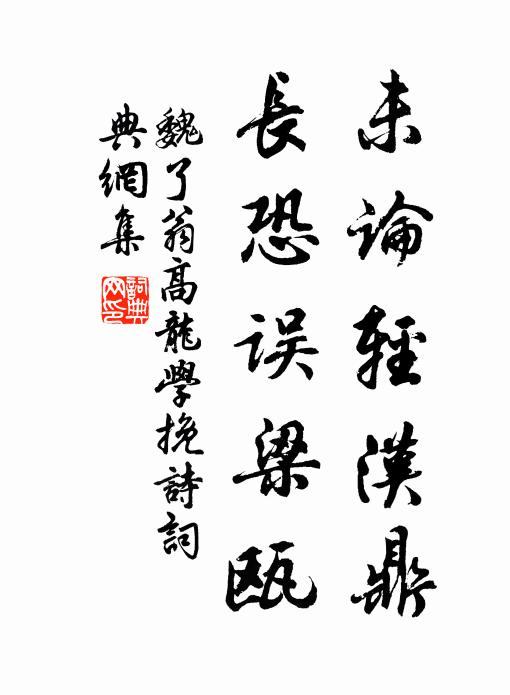 未論輕漢鼎
長恐誤梁甌
魏了翁高龍學挽詩詞
典網集
詞典網印